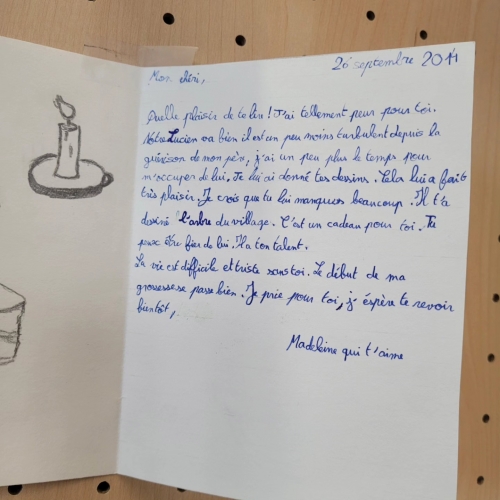 26 septembre 2014
Mon chéri,
Quelle plaisir de te lire ! J'ai tellement peur pour toi.
Notre Lucien va bien il est un peu moins turbulent depuis la
guérison de mon père, j'ai un peu plus le temps pour
m'occuper de lui. Je lui ai donné tes dessins. Cela lui a fait
très plaisir. Je crois que tu lui manques beaucoup. Il t'a
dessiné l'arbre du village. C'est un cadeau pour toi. Tu
peux être fier de lui. Il a ton talent.
La vie est difficile et triste sans toi. Le début de ma
grossesse se passe bien. Je prie pour toi, j'éspère te revoir
bientôt,
Madeleine qui t'aime